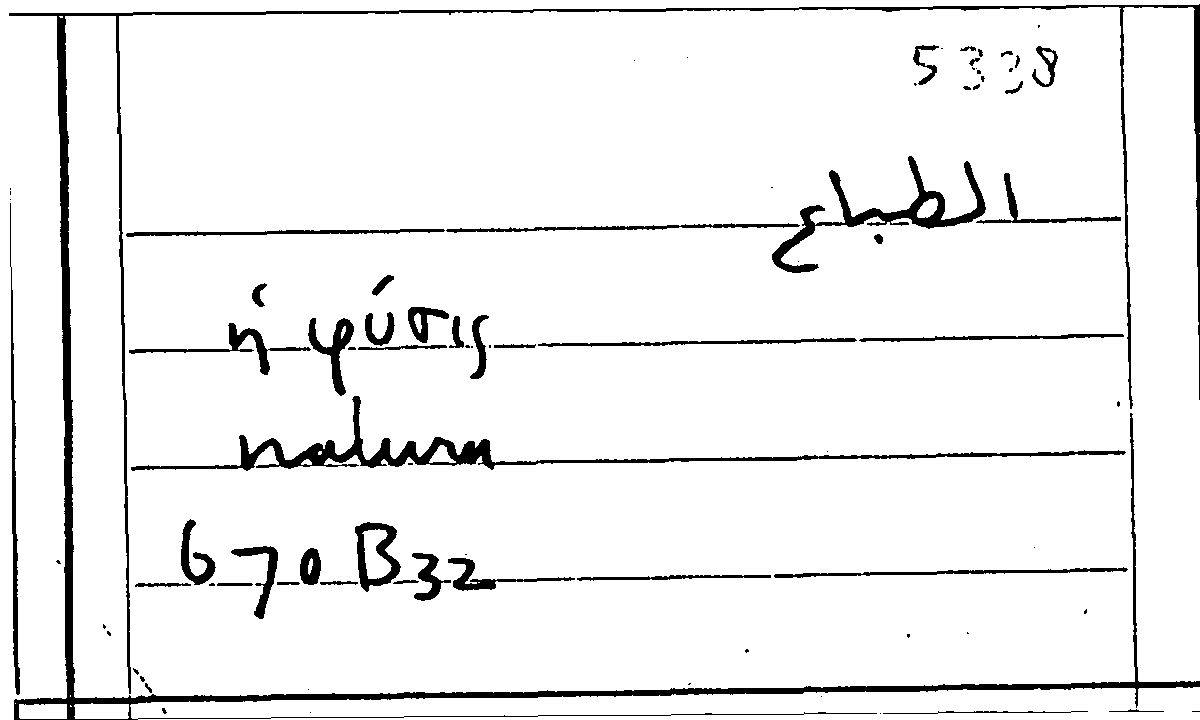 5338
الطباع
ἡ φύσις
natura
670 B32